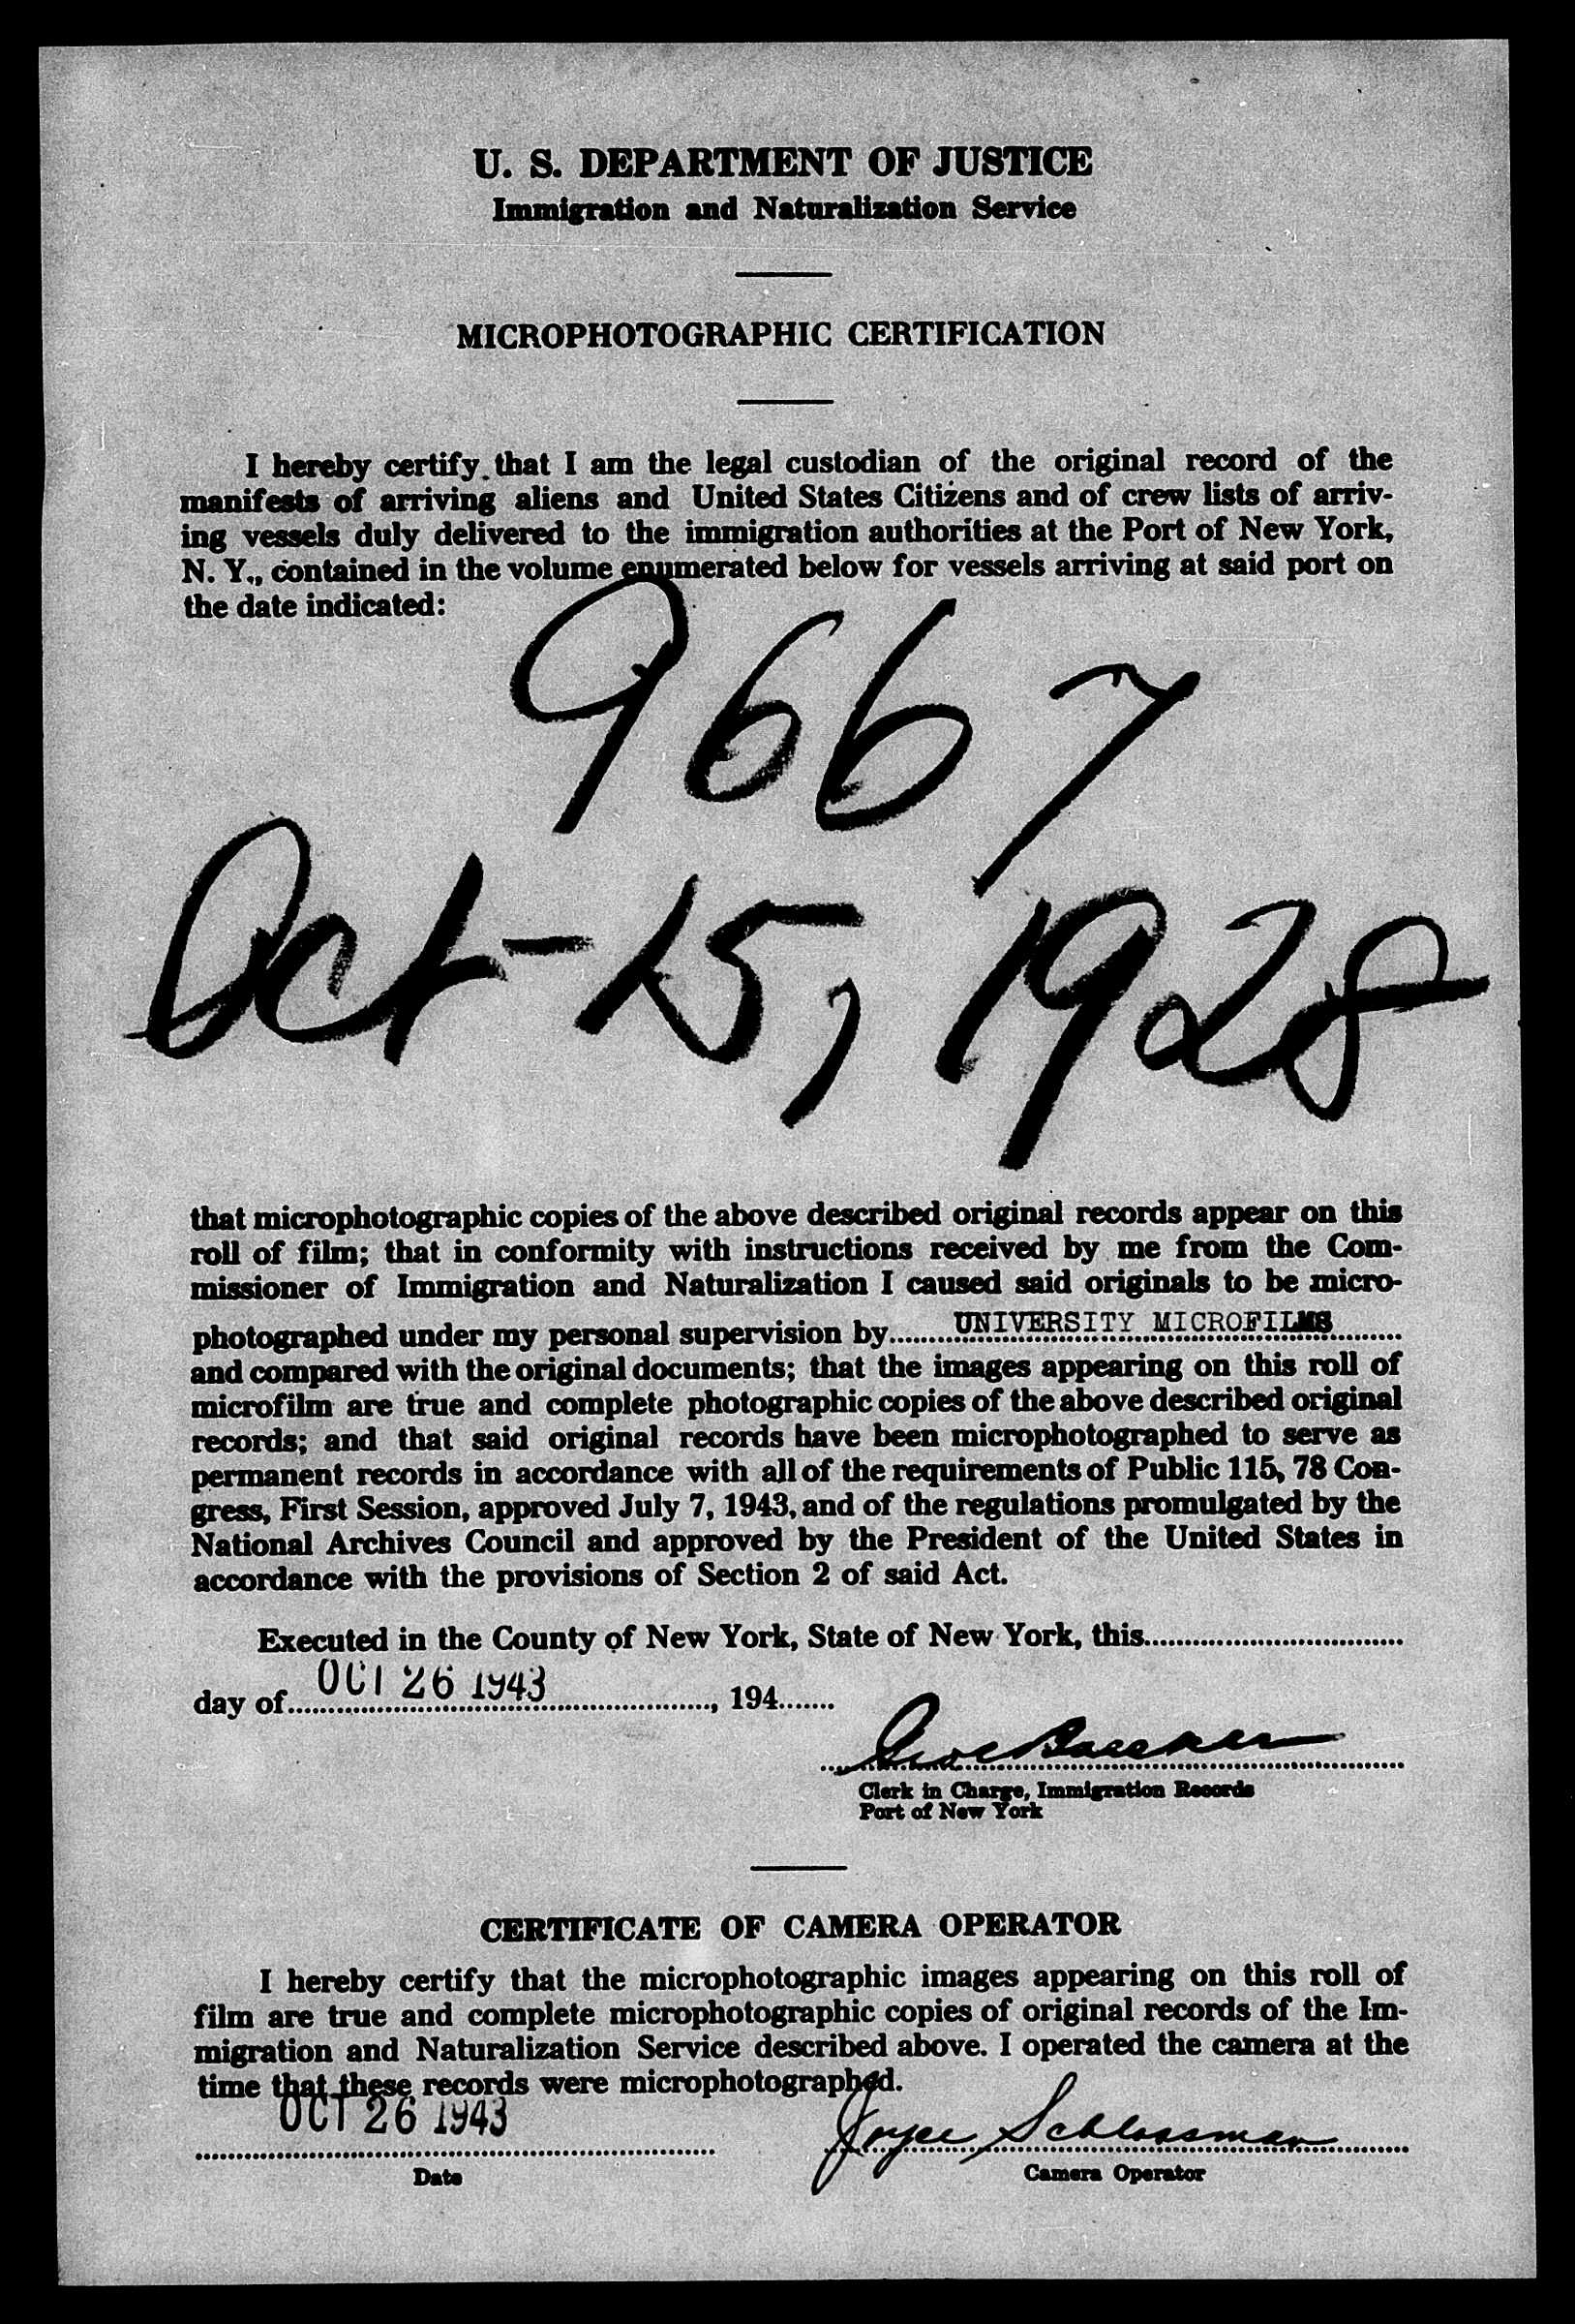 U. S. DEPARTMENT OF JUSTICE
Immigration and Naturalization Service
MICROPHOTOGRAPHIC CERTIFICATION
I hereby certify that I am the legal custodian of the original record of the
manifests of arriving aliens and United States Citizens and of crew lists of arriv-
ing vessels duly delivered to the immigration authorities at the Port of New York,
N. Y., contained in the volume enumerated below for vessels arriving at said port on
the date indicated:
9667
Oct-15, 1928
that microphotographic copies of the above described original records appear on this
roll of film; that in conformity with instructions received by me from the Com-
missioner of Immigration and Naturalization I caused said originals to be micro-
photographed under my personal supervision by UNIVERSITY MICROFILMS
and compared with the original documents; that the images appearing on this roll of
microfilm are true and complete photographic copies of the above described original
records; and that said original records have been microphotographed to serve as
permanent records in accordance with all of the requirements of Public 115, 78 Con-
gress, First Session, approved July 7, 1943, and of the regulations promulgated by the
National Archives Council and approved by the President of the United States in
accordance with the provisions of Section 2 of said Act.
Executed in the County of New York, State of New York, this
day of OCT 26 1943, 194
Clerk in Charge, Immigration Records
Port of New York
CERTIFICATE OF CAMERA OPERATOR
I hereby certify that the microphotographic images appearing on this roll of
film are true and complete microphotographic copies of original records of the Im-
migration and Naturalization Service described above. I operated the camera at the
time that these records were microphotographed.
OCT 26 1943 Joyce Schlossman
Date Camera Operator